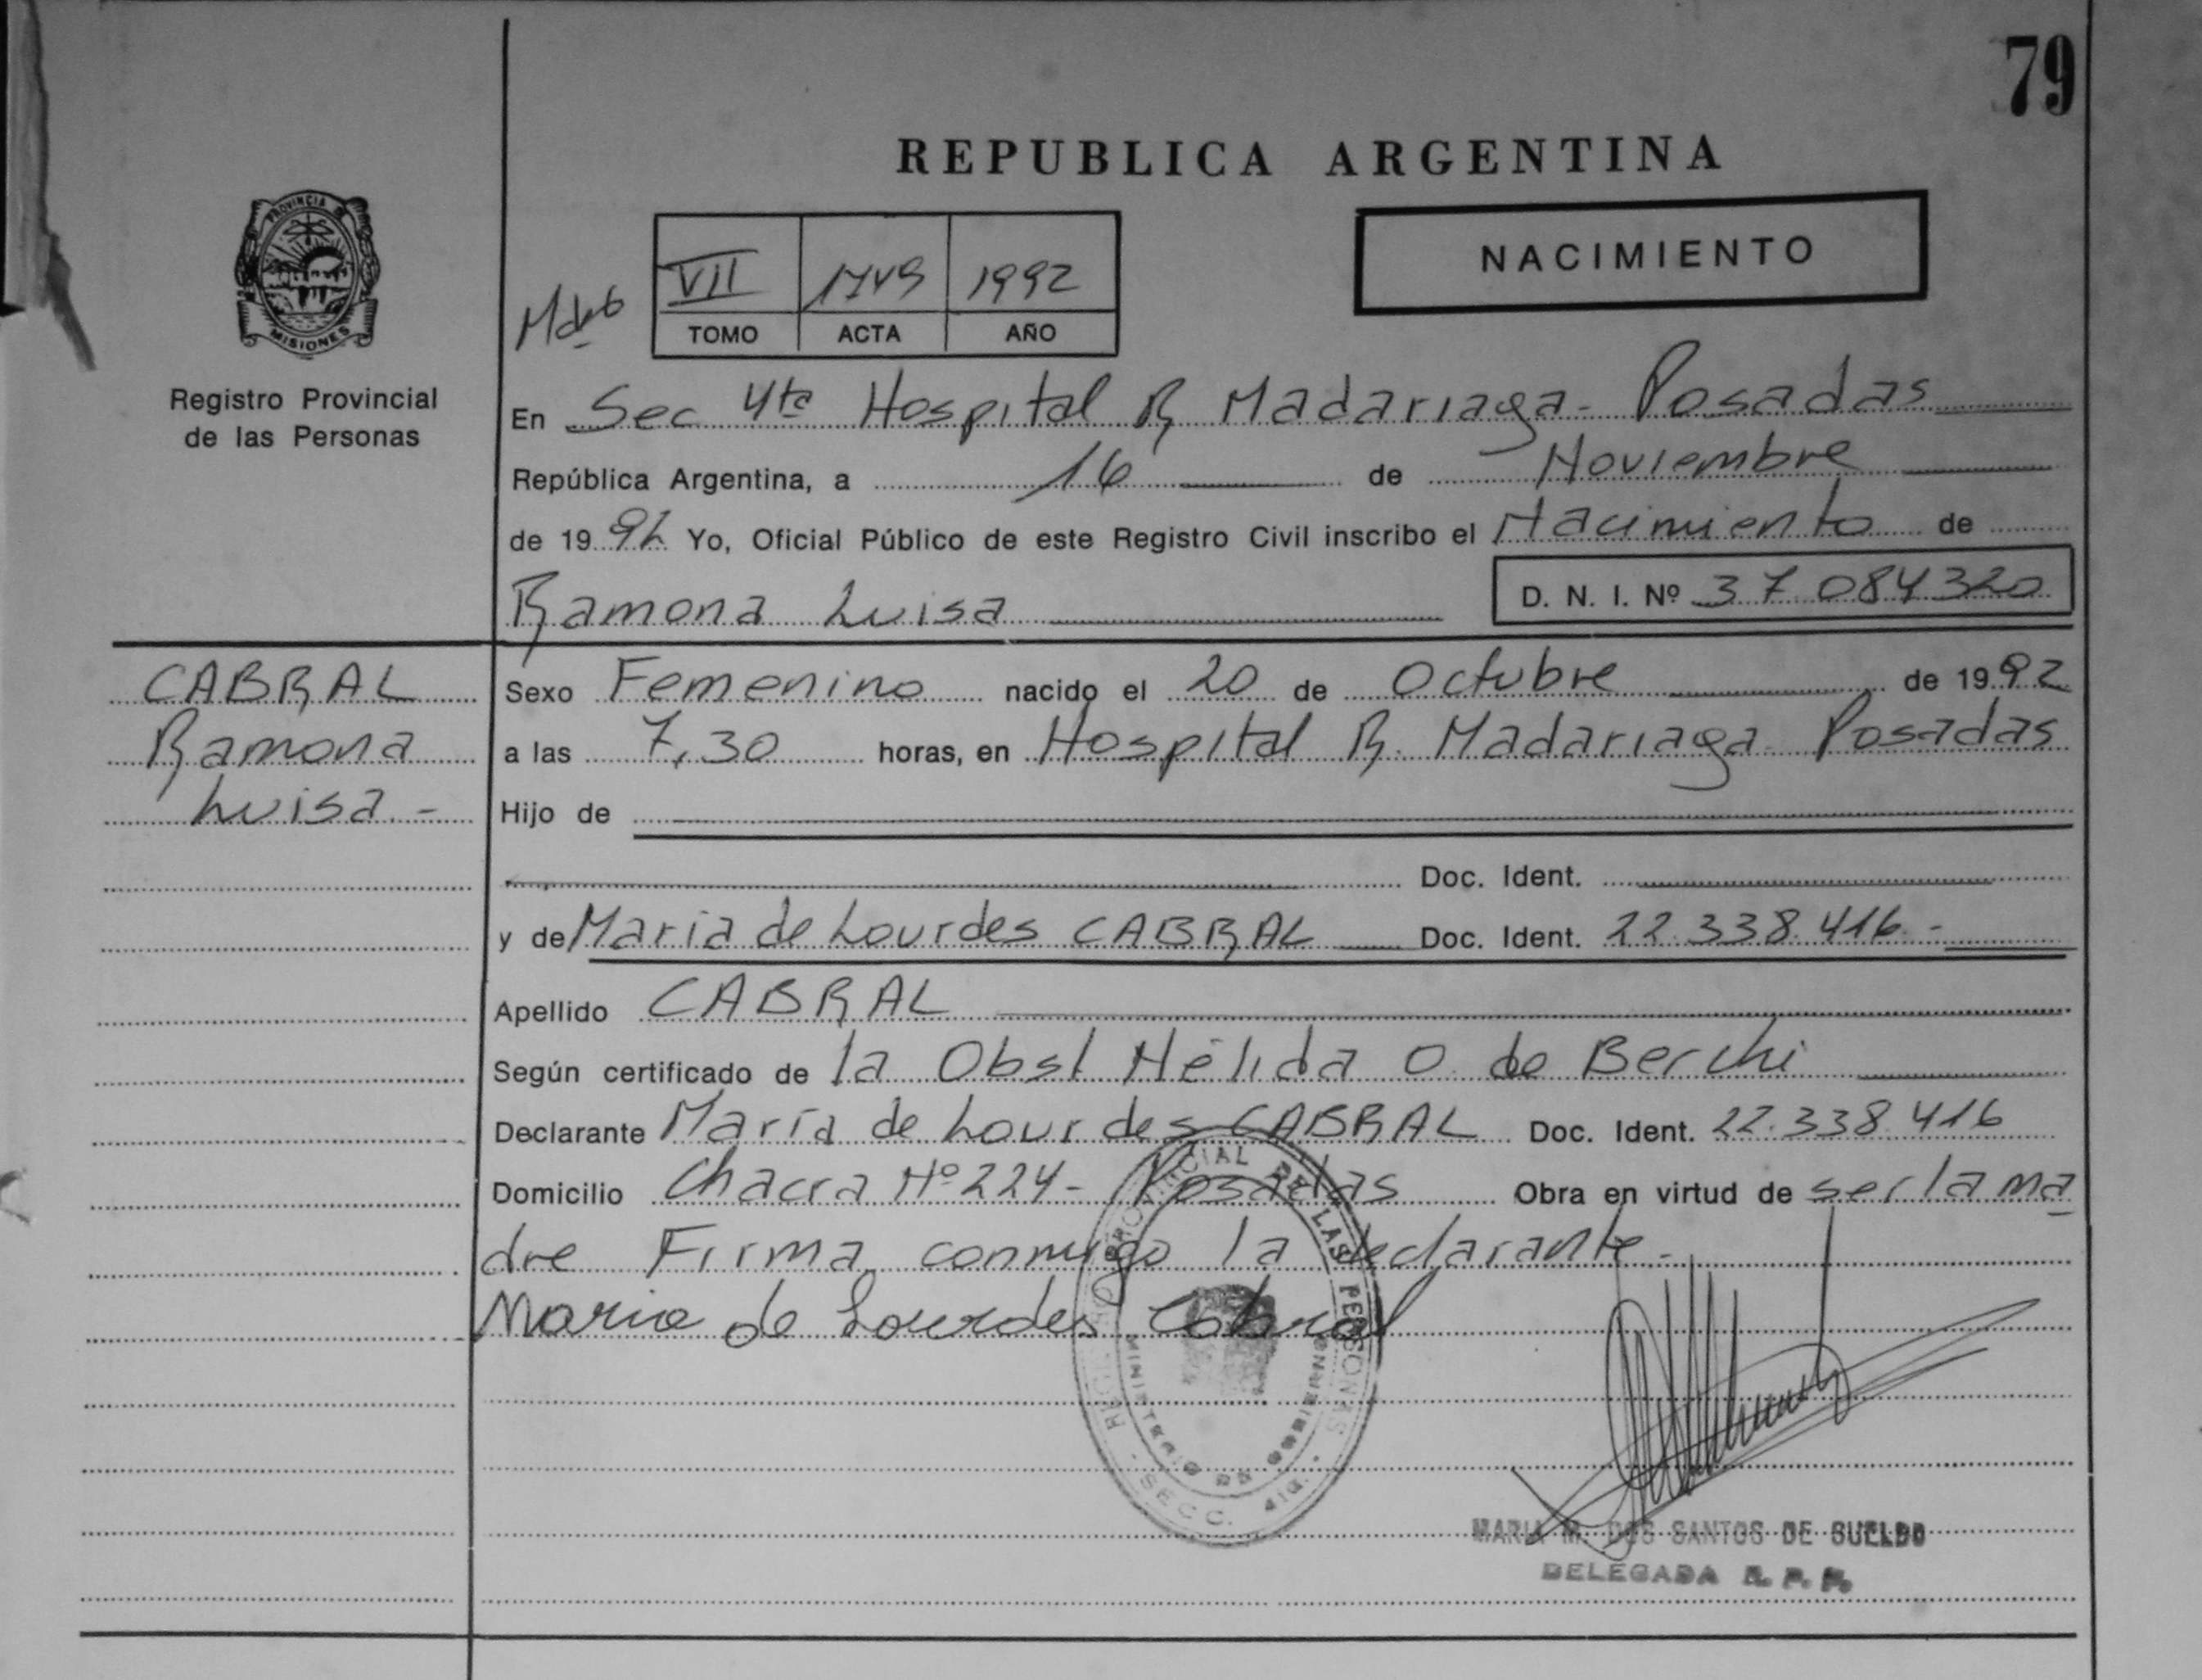 79
REPUBLICA ARGENTINA
PROVINCIA DE
MISIONES
Registro Provincial
de las Personas
NACIMIENTO
VII 1749 1992
TOMO ACTA AÑO
En Sec 4ta Hospital R Madariaga - Posadas
República Argentina, a 16 de Noviembre
de 1992 Yo, Oficial Público de este Registro Civil inscribo el Nacimiento de
Ramona Luisa D. N. I. Nº 37.084320
CABRAL
Ramona
Luisa.-
Sexo Femenino nacido el 20 de Octubre de 1992
a las 7,30 horas, en Hospital R. Madariaga Posadas
Hijo de
Doc. Ident.
y de Maria de Lourdes CABRAL Doc. Ident. 22.338.416.-
Apellido CABRAL
Según certificado de la Obst Nélida O. de Berchi
Declarante María de Lourdes CABRAL Doc. Ident. 22.338.416
Domicilio Chacra Nº 224- Posadas Obra en virtud de ser la ma
dre Firma conmigo la declarante.-
Maria de Lourdes Cabral
REGISTRO PROVINCIAL DE LAS PERSONAS
MINISTERIO DE GOBIERNO
SECC.
MARIA M. DOS SANTOS DE SUELDO
DELEGADA R. P. P.